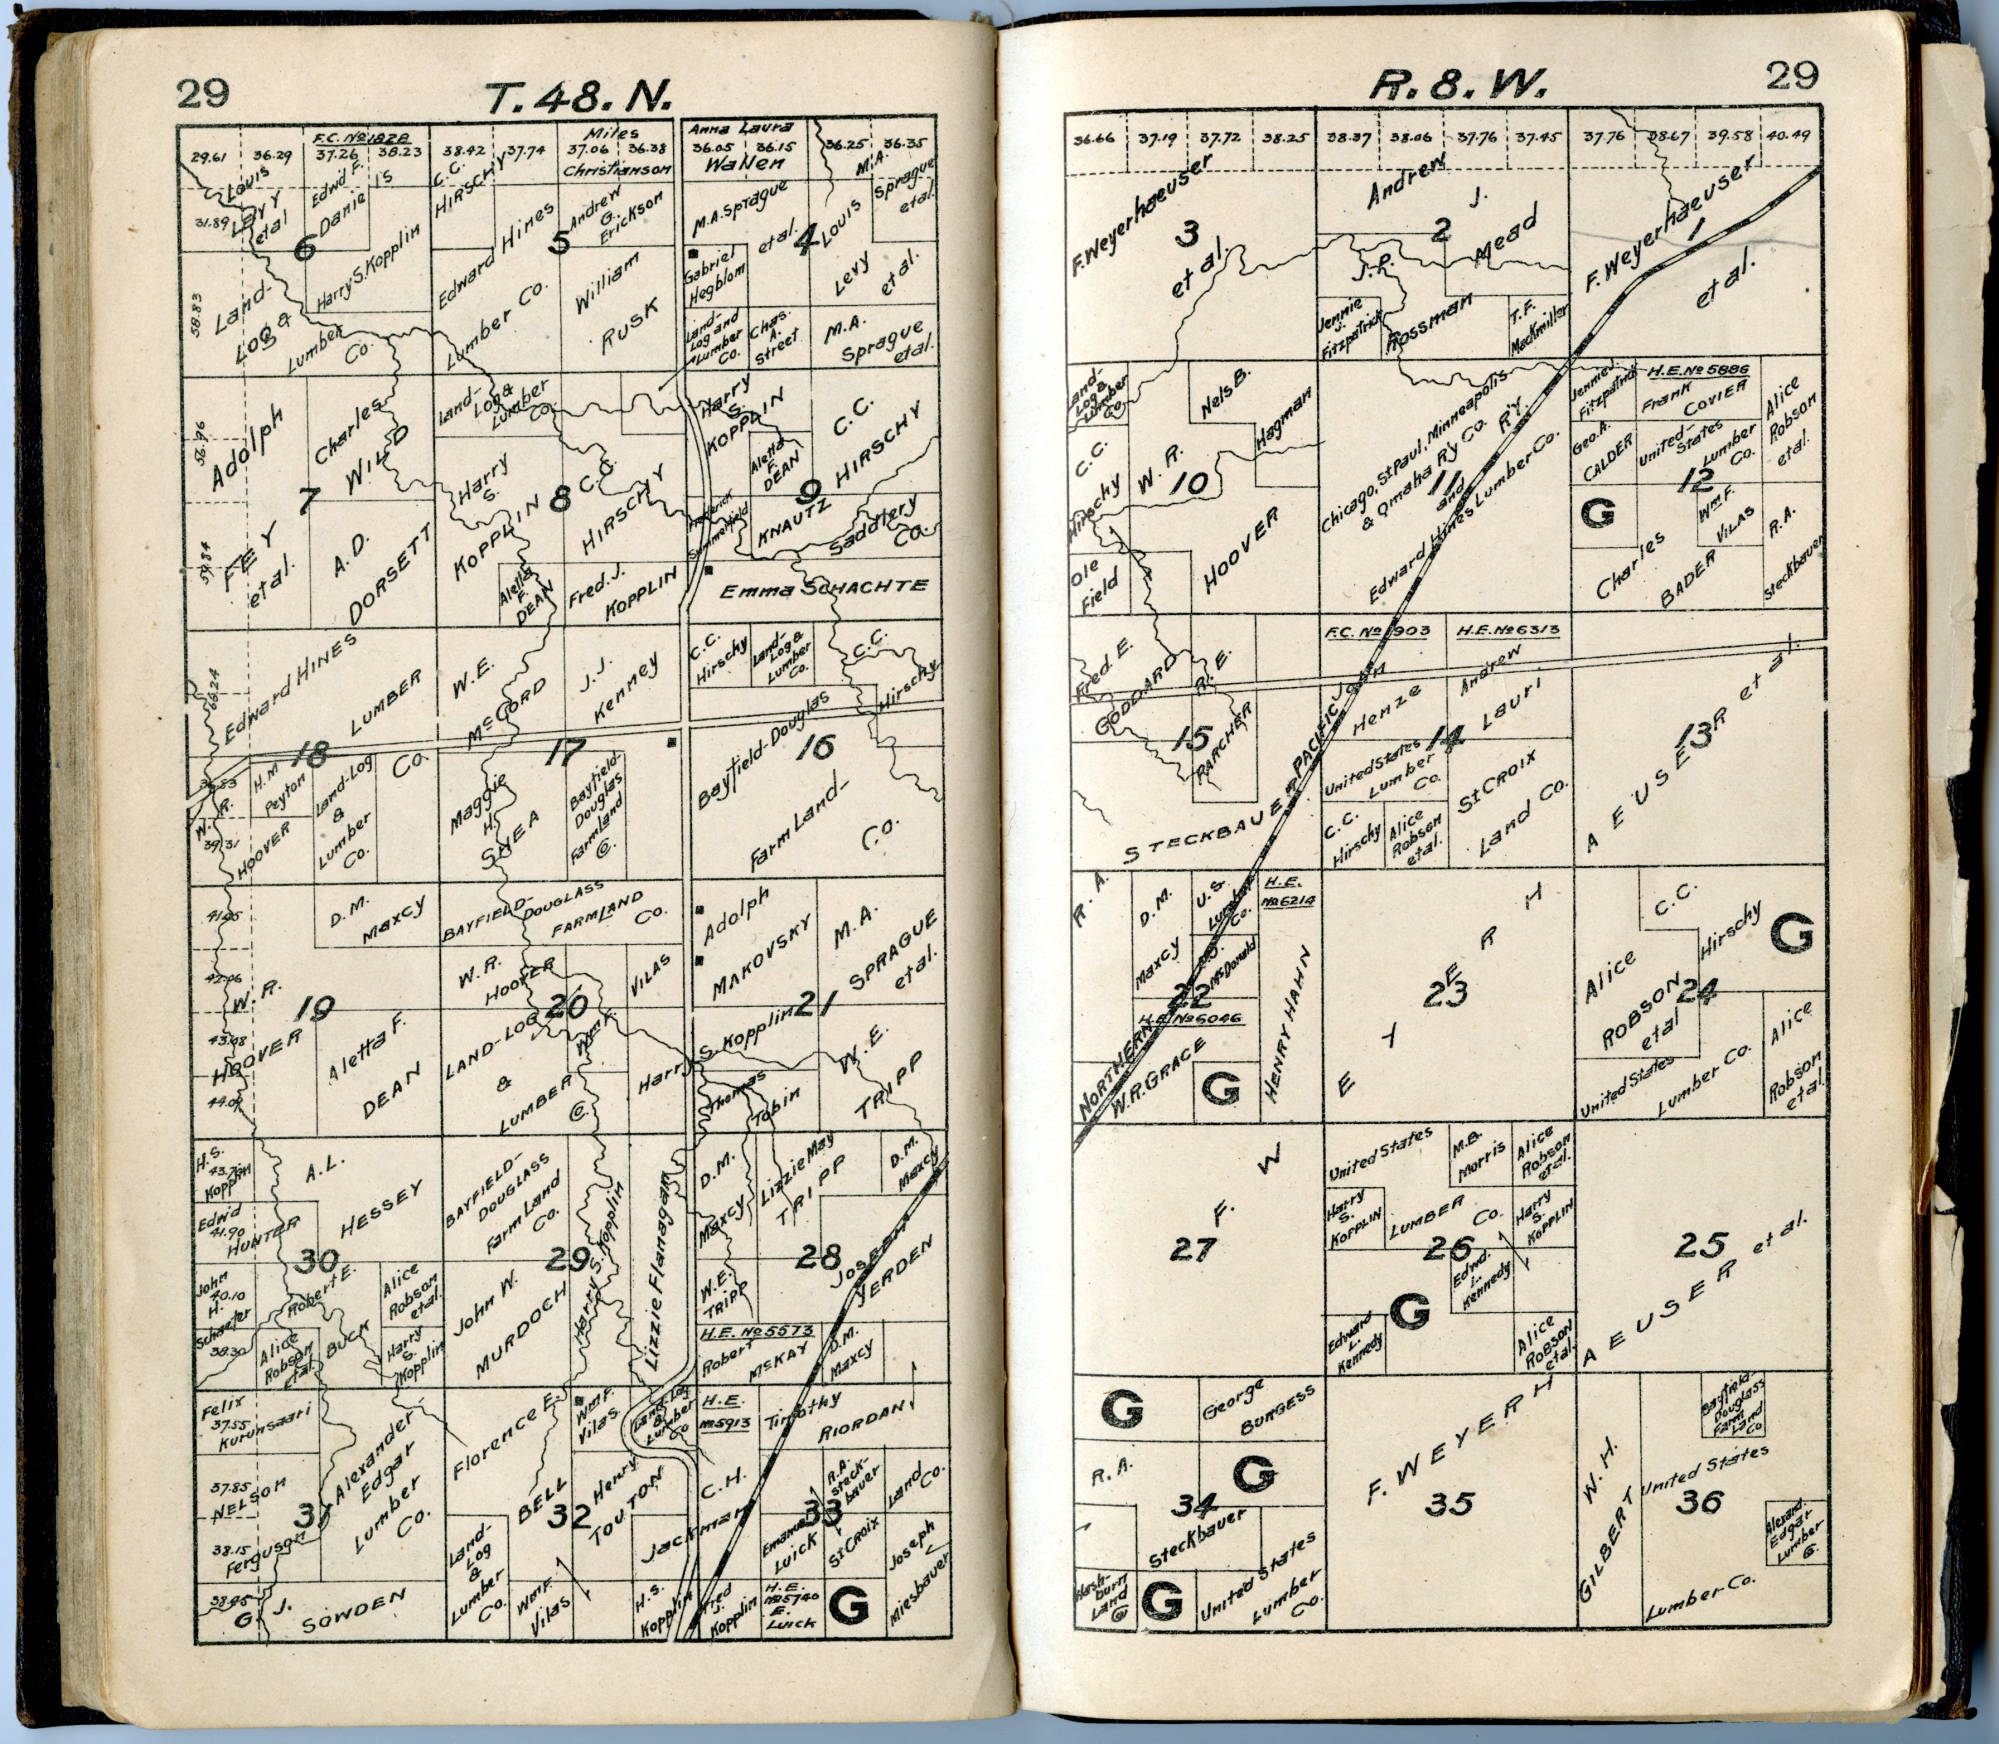 29
T. 48. N.
F.C. No 1828
29.61 36.29 37.26 38.23 38.42 37.74 37.06 36.38 36.05 36.15 36.25 36.35
Louis
Levy
etal
31.89
Edwd F.
Daniels
C.C.
HIRSCHY
Miles
Christianson
Anna Laura
Wallen
M.A.
Sprague
etal.
6
Harry S. Kopplin
58.83
Land-
Log &
Lumber
Co.
5
Edward Hines
Lumber Co.
Andrew
G.
Erickson
William
RUSK
4
M.A. Sprague
etal.
Gabriel
Hegblom
Louis
Levy
etal.
Land-
Log and
Lumber
Co.
Chas.
A.
Street
M.A.
Sprague
etal.
7
56.96
59.84
Adolph
FEY
etal.
Charles
WILD
A.D.
DORSETT
8
Land-
Log &
Lumber
Co.
Harry
S.
KOPPLIN
C.C.
HIRSCHY
Aletta
F.
DEAN
Fred. J.
KOPPLIN
9
Harry
S.
KOPPLIN
Aletta
F.
DEAN
C.C.
HIRSCHY
Frederick
Summerfield
KNAUTZ
Saddlery
Co.
Emma SCHACHTE
18
66.24
Edward HINES
LUMBER
Co.
W. R.
39.31
HOOVER
H.M
Peyton
Land-Log
&
Lumber
Co.
17
W.E.
McCORD
J.J.
Kenney
Maggie
H.
SHEA
Bayfield-
Douglas
Farmland
Co.
16
C.C.
Hirschy
Land-
Log &
Lumber
Co.
C.C.
Hirschy
Bayfield-Douglas
Farm Land-
Co.
19
D.M.
Maxcy
W.R.
HOOVER
Aletta F.
DEAN
20
BAYFIELD-
DOUGLASS
FARMLAND
Co.
W.R.
HOOVER
VILAS
Wm F.
LAND-LOG
&
LUMBER
Co.
Harry
S. Kopplin
21
Adolph
MAKOVSKY
M.A.
SPRAGUE
etal.
Thomas
Tobin
W.E.
TRIPP
30
H.S.
43.72
Kopplin
A.L.
HESSEY
Edw'd
41.90
HUNTER
John
40.10
H.
Schaefer
38.30
Robert E.
BUCK
Alice
Robson
etal.
Alice
Robson
etal.
Harry
S.
Kopplin
29
BAYFIELD-
DOUGLASS
Farm Land
Co.
John W.
MURDOCH
Harry S. Kopplin
Lizzie Flanagan
28
D.M.
Maxcy
Lizzie May
TRIPP
D.M.
Maxcy
W.E.
TRIPP
Joseph
YERDEN
H.E. No 5573
Robert
McKAY
D.M.
Maxcy
31
Felix
37.55
Kurunsaari
37.85
NELSON
38.15
Ferguson
38.45
G. J.
SOWDEN
Alexander
Edgar
Lumber
Co.
32
Florence E.
BELL
Wm F.
Vilas
Land-Log
&
Lumber
Co
Henry
TOUTON
Land-
Log
&
Lumber
Co.
Wm F.
Vilas
H.S.
Kopplin
33
H.E.
No 5913
Timothy
RIORDAN
C.H.
Jackman
R.A.
Steck-
bauer
Land
Co.
Emanuel
Luick
St CROIX
Joseph
Miesbauer
Fred
J.
Kopplin
H.E.
No 5740
E.
Luick
G
R. 8. W.
29
36.66 37.19 37.72 38.25 38.37 38.06 37.76 37.45 37.76 38.67 39.58 40.49
3
F. Weyerhaeuser
etal.
2
Andrew
J.
Mead
J.P.
Rossman
Jennie
J.
Fitzpatrick
T.F.
MacKmiller
1
F. Weyerhaeuser
etal.
10
Land-
Log &
Lumber
Co
Nels B.
Hagman
C.C.
Hirschy
W. R.
HOOVER
Ole
Field
11
Chicago, St Paul, Minneapolis
& Omaha R'y Co. R'Y
and
Edward Hines Lumber Co.
12
Jennie J.
Fitzpatrick
H.E. No 5886
Frank
COVIER
Alice
Robson
etal.
Geo. A.
CALDER
United-
States
Lumber
Co.
G
Wm F.
VILAS
Charles
BADER
R.A.
Steckbauer
15
Fred. E.
GODDARD
R.E.
PARCHER
STECKBAUER
14
F.C. No 1903
H.E. No 6313
John
Henze
Andrew
Lauri
United States
Lumber
Co.
C.C.
Hirschy
Alice
Robson
etal.
St CROIX
Land Co.
13
AEUSER etal.
22
R. A.
D.M.
Maxcy
U.S.
Lumber
Co.
H.E.
No 6214
McDonald
H.E. No 6046
W.R. GRACE
G
HENRY HAHN
NORTHERN PACIFIC
23
F. WEYERH
24
C.C.
Hirschy
G
Alice
ROBSON
etal
United States
Lumber Co.
Alice
Robson
etal.
27
26
United States
LUMBER
Co.
M.B.
Morris
Alice
Robson
etal.
Harry
S.
KOPPLIN
Harry
S.
KOPPLIN
Edwd.
L.
Kennedy
G
Edward
L.
Kennedy
Alice
ROBSON
etal.
25
AEUSER etal.
34
G
George
BURGESS
R.A.
Steckbauer
G
Wash-
burn
Land
Co
G
United States
Lumber
Co.
35
F. WEYERH
36
W.H.
GILBERT
Bayfield
Douglass
Farm
Land
Co
United States
Lumber Co.
Alexand.
Edgar
Lumber
Co.